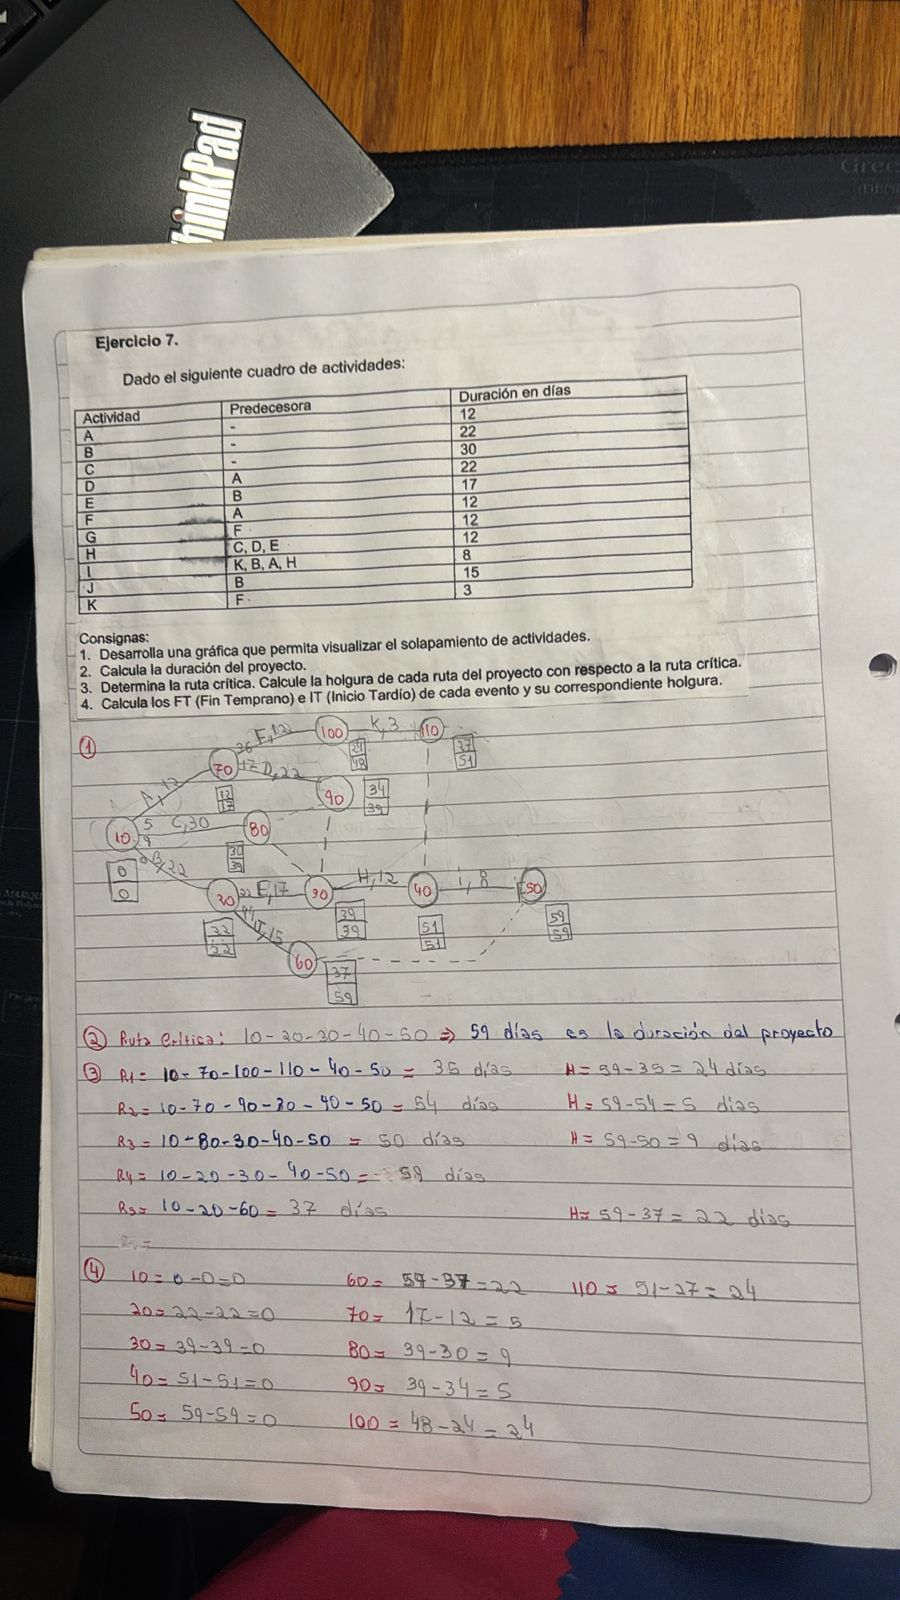 ThinkPad
Ejercicio 7.
Dado el siguiente cuadro de actividades:
Actividad Predecesora Duración en días
A - 12
B - 22
C - 30
D A 22
E B 17
F A 12
G F 12
H C, D, E 12
I K, B, A, H 8
J B 15
K F 3
Consignas:
1. Desarrolla una gráfica que permita visualizar el solapamiento de actividades.
2. Calcula la duración del proyecto.
3. Determina la ruta crítica. Calcule la holgura de cada ruta del proyecto con respecto a la ruta crítica.
4. Calcula los FT (Fin Temprano) e IT (Inicio Tardío) de cada evento y su correspondiente holgura.
1
F, 12 100 K, 3 110
24
48
37
51
70 D, 22
A, 12
12
17
90
34
39
10 5 C, 30 80
9
0
0
30
39
B, 22
20 22 E, 17 30 H, 12 40 I, 8 50
22
22
39
39
51
51
59
59
J, 15
60
37
59
2 Ruta Crítica: 10-20-30-40-50 ⇒ 59 días es la duración del proyecto
3 R1= 10-70-100-110-40-50 = 35 días H= 59-35 = 24 días
R2= 10-70-90-30-40-50 = 54 días H= 59-54 = 5 días
R3= 10-80-30-40-50 = 50 días H= 59-50 = 9 días
R4= 10-20-30-40-50 = 59 días
R5= 10-20-60 = 37 días H= 59-37 = 22 días
4 10= 0-0=0 60= 59-37=22 110= 51-27=24
20= 22-22=0 70= 17-12=5
30= 39-39=0 80= 39-30=9
40= 51-51=0 90= 39-34=5
50= 59-59=0 100= 48-24=24